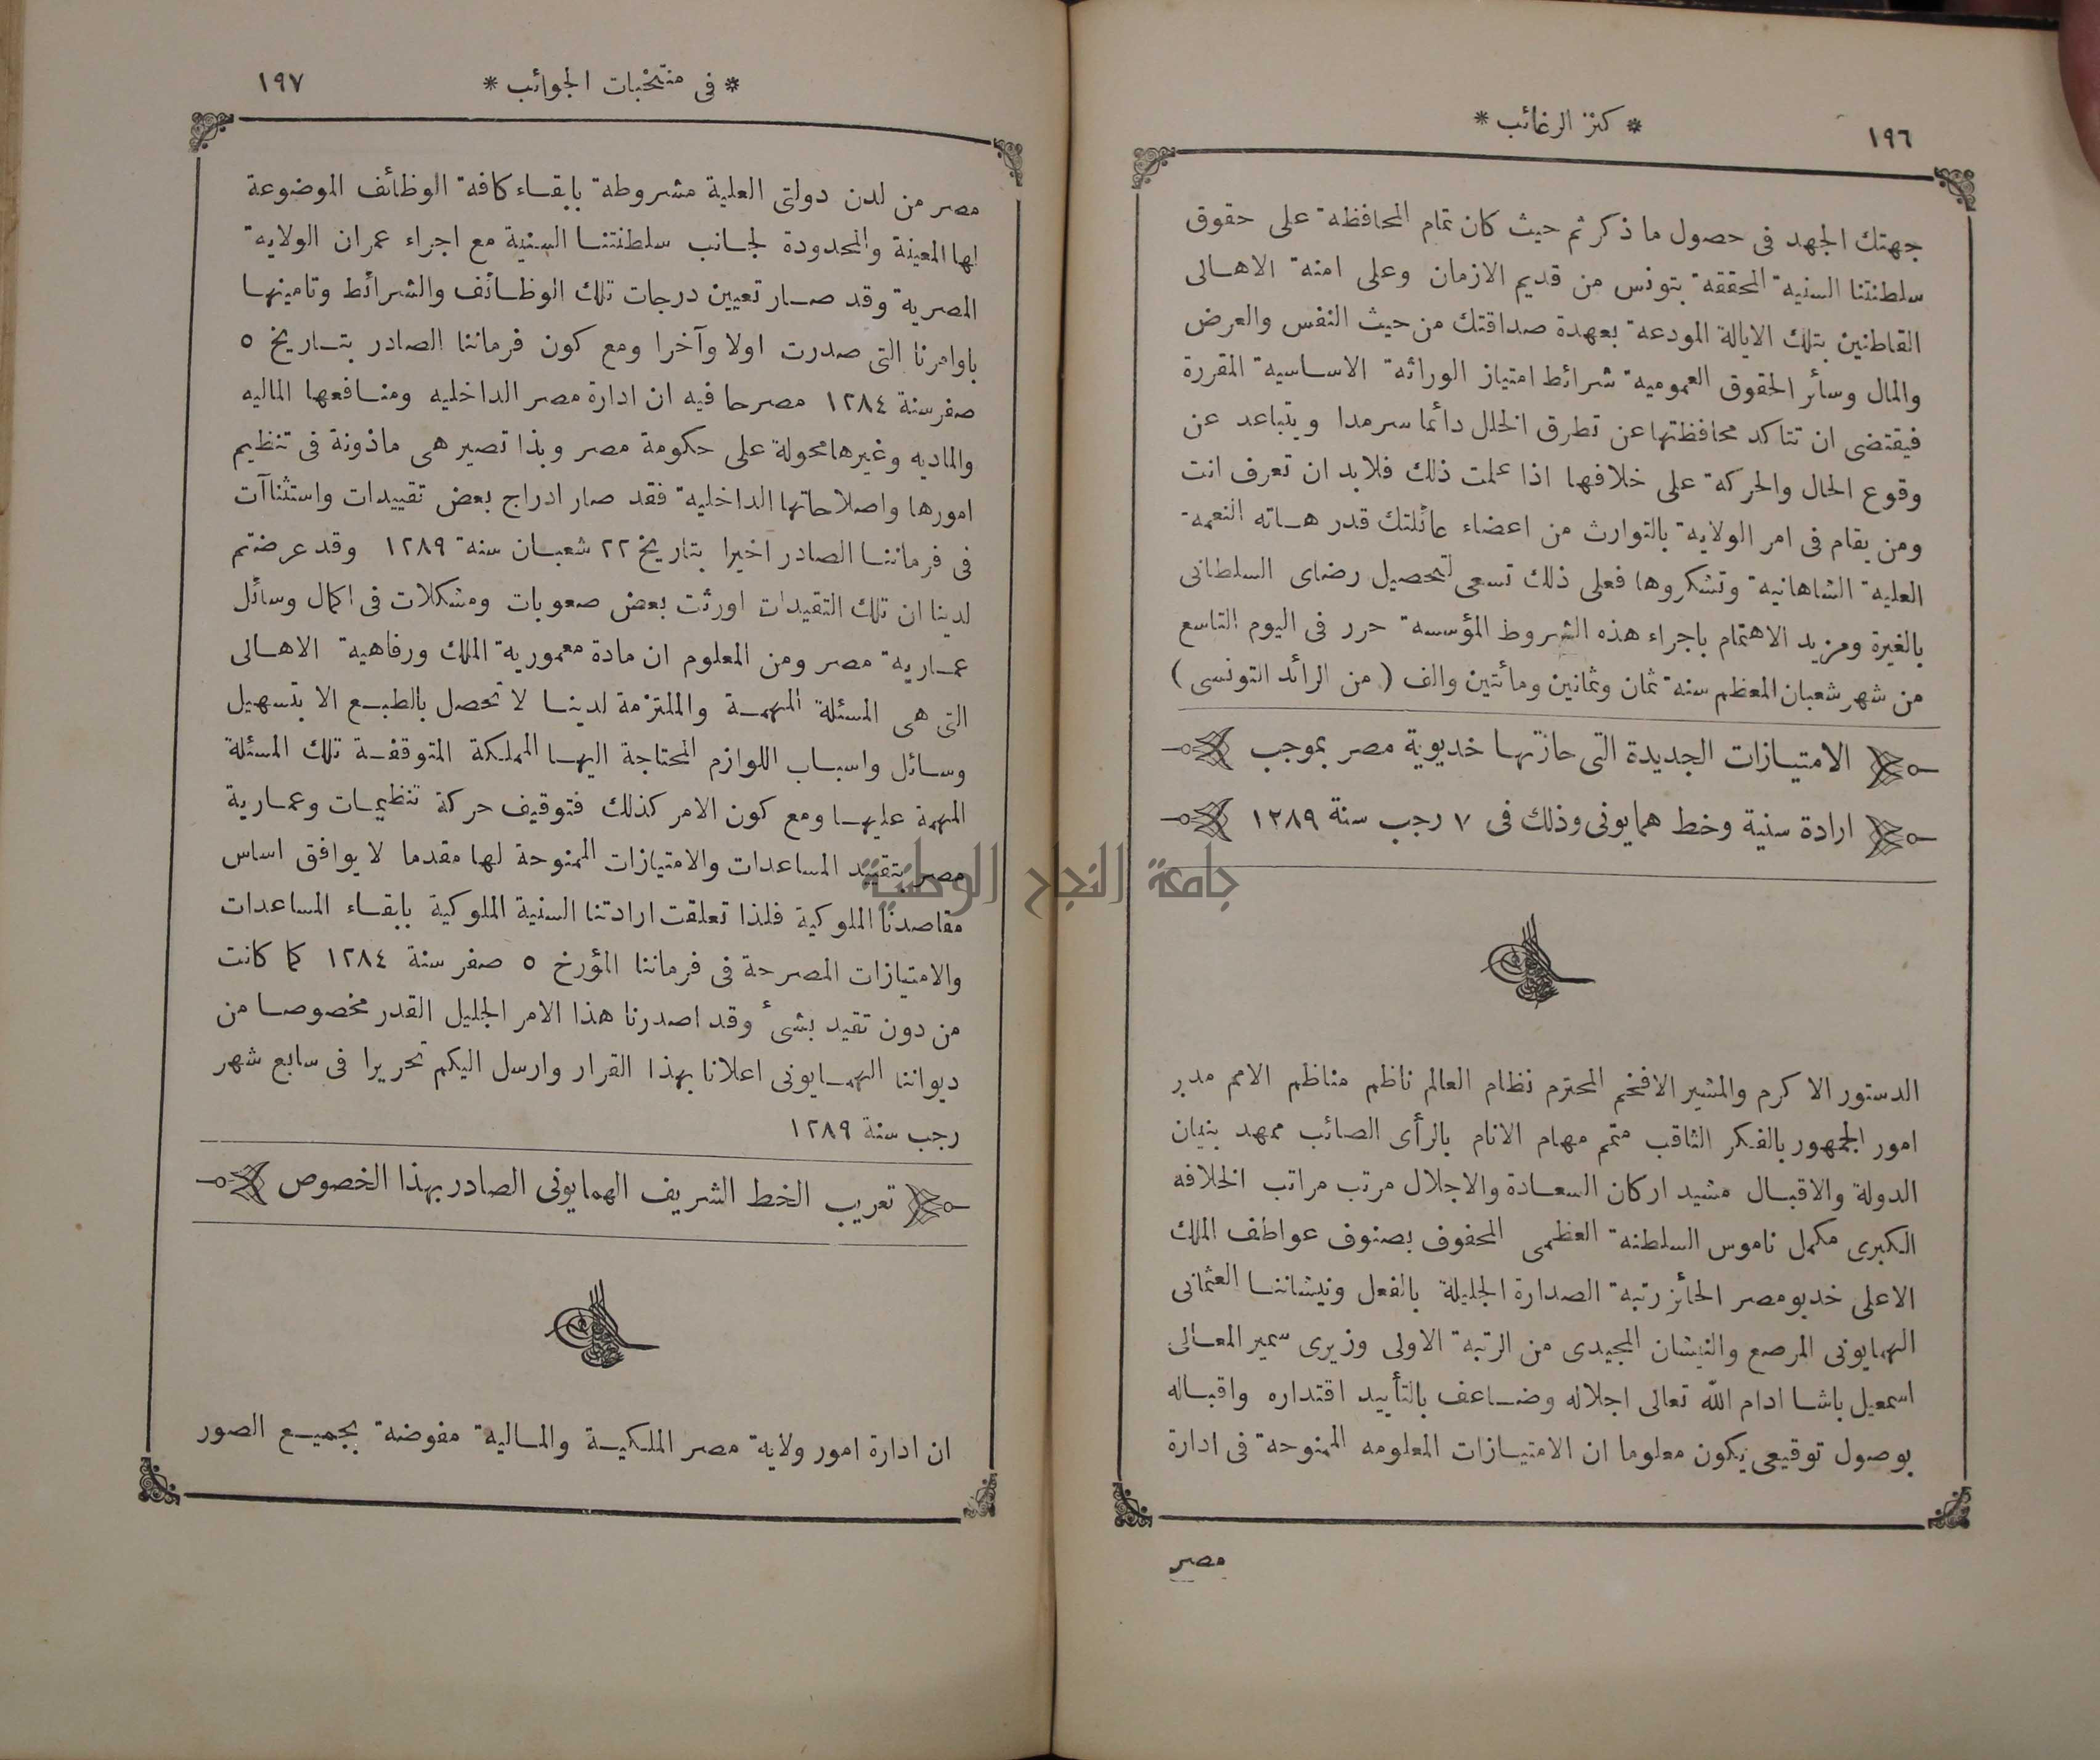 ١٩٦
* كنز الرغائب *
جهتك الجهد فى حصول ما ذكر ثم حيث كان تمام المحافظة على حقوق
سلطنتنا السنية المحققة بتونس من قديم الازمان وعلى امنة الاهالى
القاطنين بتلك الايالة المودعة بعهدة صداقتك من حيث النفس والعرض
والمال وسائر الحقوق العمومية شرائط امتياز الوراثة الاساسية المقررة
فيقتضى ان تتاكد محافظتها عن تطرق الخلل دائما سرمدا ويتباعد عن
وقوع الحال والحركة على خلافها اذا علمت ذلك فلابد ان تعرف انت
ومن يقام فى امر الولاية بالتوارث من اعضاء عائلتك قدر هاته النعمة
العلية الشاهانية وتشكروها فعلى ذلك تسعى لتحصيل رضاى السلطانى
بالغيرة ومزيد الاهتمام باجراء هذه الشروط المؤسسة حرر فى اليوم التاسع
من شهر شعبان المعظم سنة ثمان وثمانين ومأتين والف ( من الرائد التونسى )
الامتيازات الجديدة التى حازتها خديوية مصر بموجب
ارادة سنية وخط همايونى وذلك فى ٧ رجب سنة ١٢٨٩
الدستور الاكرم والمشير الافخم المحترم نظام العالم ناظم مناظم الامم مدبر
امور الجمهور بالفكر الثاقب متمم مهام الانام بالرأى الصائب ممهد بنيان
الدولة والاقبال مشيد اركان السعادة والاجلال مرتب مراتب الخلافه
الكبرى مكمل ناموس السلطنة العظمى المحفوف بصنوف عواطف الملك
الاعلى خديو مصر الحائز رتبة الصدارة الجليلة بالفعل ونيشاننا العثمانى
الهمايونى المرصع والنيشان المجيدى من الرتبة الاولى وزيرى سمير المعالى
اسمعيل باشا ادام الله تعالى اجلاله وضاعف بالتأييد اقتداره واقباله
بوصول توقيعى يكون معلوما ان الامتيازات المعلومه الممنوحة فى ادارة
مصر
* فى منتخبات الجوائب *
١٩٧
مصر من لدن دولتى العلية مشروطة بابقاء كافة الوظائف الموضوعة
لها المعينة والمحدودة لجانب سلطنتنا السنية مع اجراء عمران الولاية
المصرية وقد صار تعيين درجات تلك الوظائف والشرائط وتامينها
باوامرنا التى صدرت اولا وآخرا ومع كون فرماننا الصادر بتاريخ ٥
صفر سنة ١٢٨٤ مصرحا فيه ان ادارة مصر الداخليه ومنافعها الماليه
والماديه وغيرها محولة على حكومة مصر وبذا تصير هى ماذونة فى تنظيم
امورها واصلاحاتها الداخلية فقد صار ادراج بعض تقييدات واستثناآت
فى فرماننا الصادر اخيرا بتاريخ ٢٢ شعبان سنة ١٢٨٩ وقد عرضتم
لدينا ان تلك التقيدات اورثت بعض صعوبات ومشكلات فى اكمال وسائل
عمارية مصر ومن المعلوم ان مادة معمورية الملك ورفاهية الاهالى
التى هى المسئلة المهمة والملتزمة لدينا لا تحصل بالطبع الا بتسهيل
وسائل واسباب اللوازم المحتاجة اليها المملكة المتوقفة تلك المسئلة
المهمة عليها ومع كون الامر كذلك فتوقيف حركة تنظيمات وعمارية
مصر بتقييد المساعدات والامتيازات الممنوحة لها مقدما لا يوافق اساس
مقاصدنا الملوكية فلذا تعلقت ارادتنا السنية الملوكية بابقاء المساعدات
والامتيازات المصرحة فى فرماننا المؤرخ ٥ صفر سنة ١٢٨٤ كما كانت
من دون تقيد بشىء وقد اصدرنا هذا الامر الجليل القدر مخصوصا من
ديواننا الهمايونى اعلانا بهذا القرار وارسل اليكم تحريرا فى سابع شهر
رجب سنة ١٢٨٩
تعريب الخط الشريف الهمايونى الصادر بهذا الخصوص
ان ادارة امور ولاية مصر الملكية والمالية مفوضة بجميع الصور
جامعة النجاح الوطنية